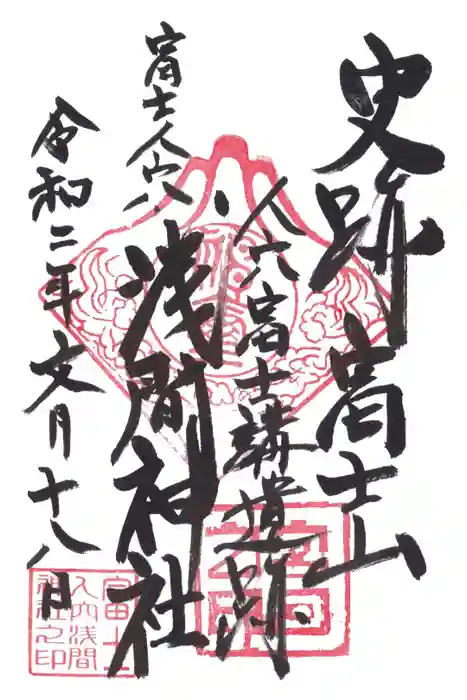 史跡 富士山
人穴富士講遺跡
富士人穴
浅間神社
令和二年文月十八日
富士
人穴浅間
神社之印